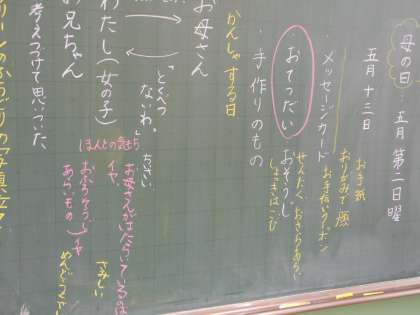 母の日…五月第二日曜
五月十三日
お手紙
おりがみで
・メッセージカード
お手伝いクーポン
・おてつだい
おそうじ
せんたく おさらあらい
しょっきはこび
・手作りのもの
かんしゃする日
お母さん
「とくべつ
ないわ。」
わたし(女の子)
お兄ちゃん
考えつづけて思いついた
ほんとの気もち
ちいさい
お母さんがはたらいているのは
イヤ
さみしい
おふろそうじ
あらいもの
イヤ
めんどうくさい